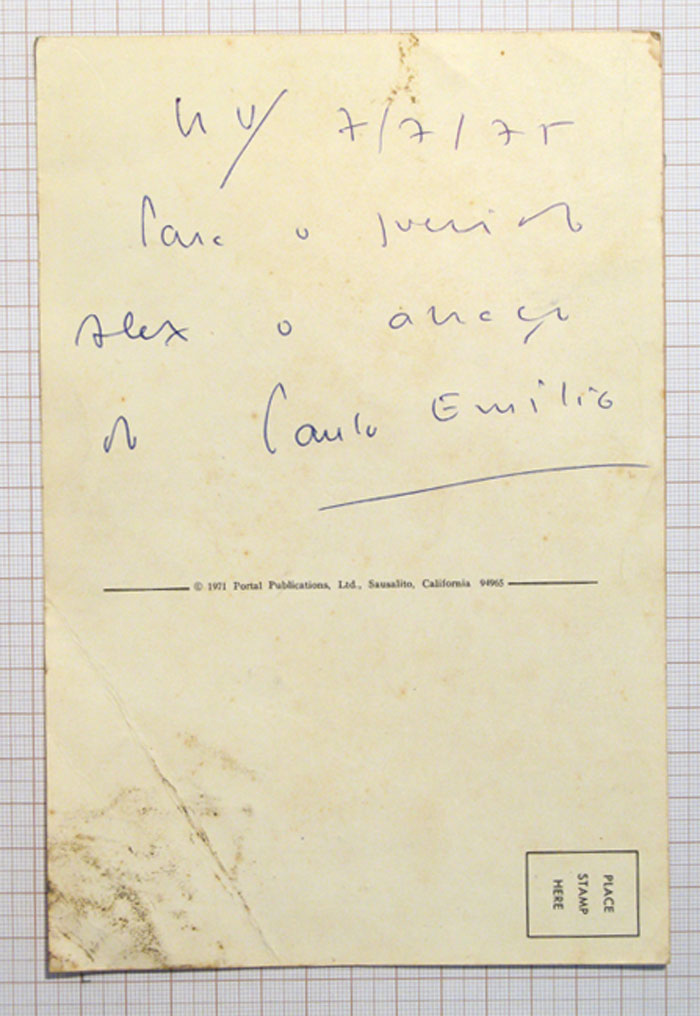 NY 7/7/75
Para o querido
Alex o abraço
do Paulo Emilio
© 1971 Portal Publications, Ltd., Sausalito, California 94965
PLACE
STAMP
HERE